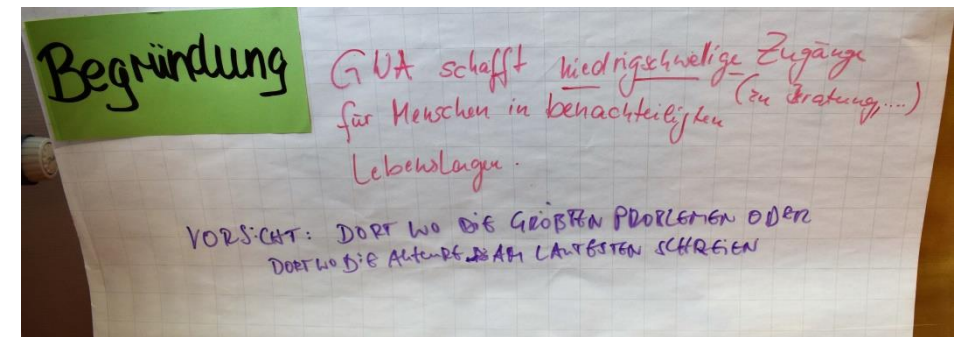 Begründung
GWA schafft niedrigschwellige Zugänge
(zu Beratung,....)
für Menschen in benachteiligten
Lebenslagen.
VORSICHT: DORT WO DIE GRÖßTEN PROBLEMEN ODER
DORT WO DIE AKTEURE AM LAUTESTEN SCHREIEN